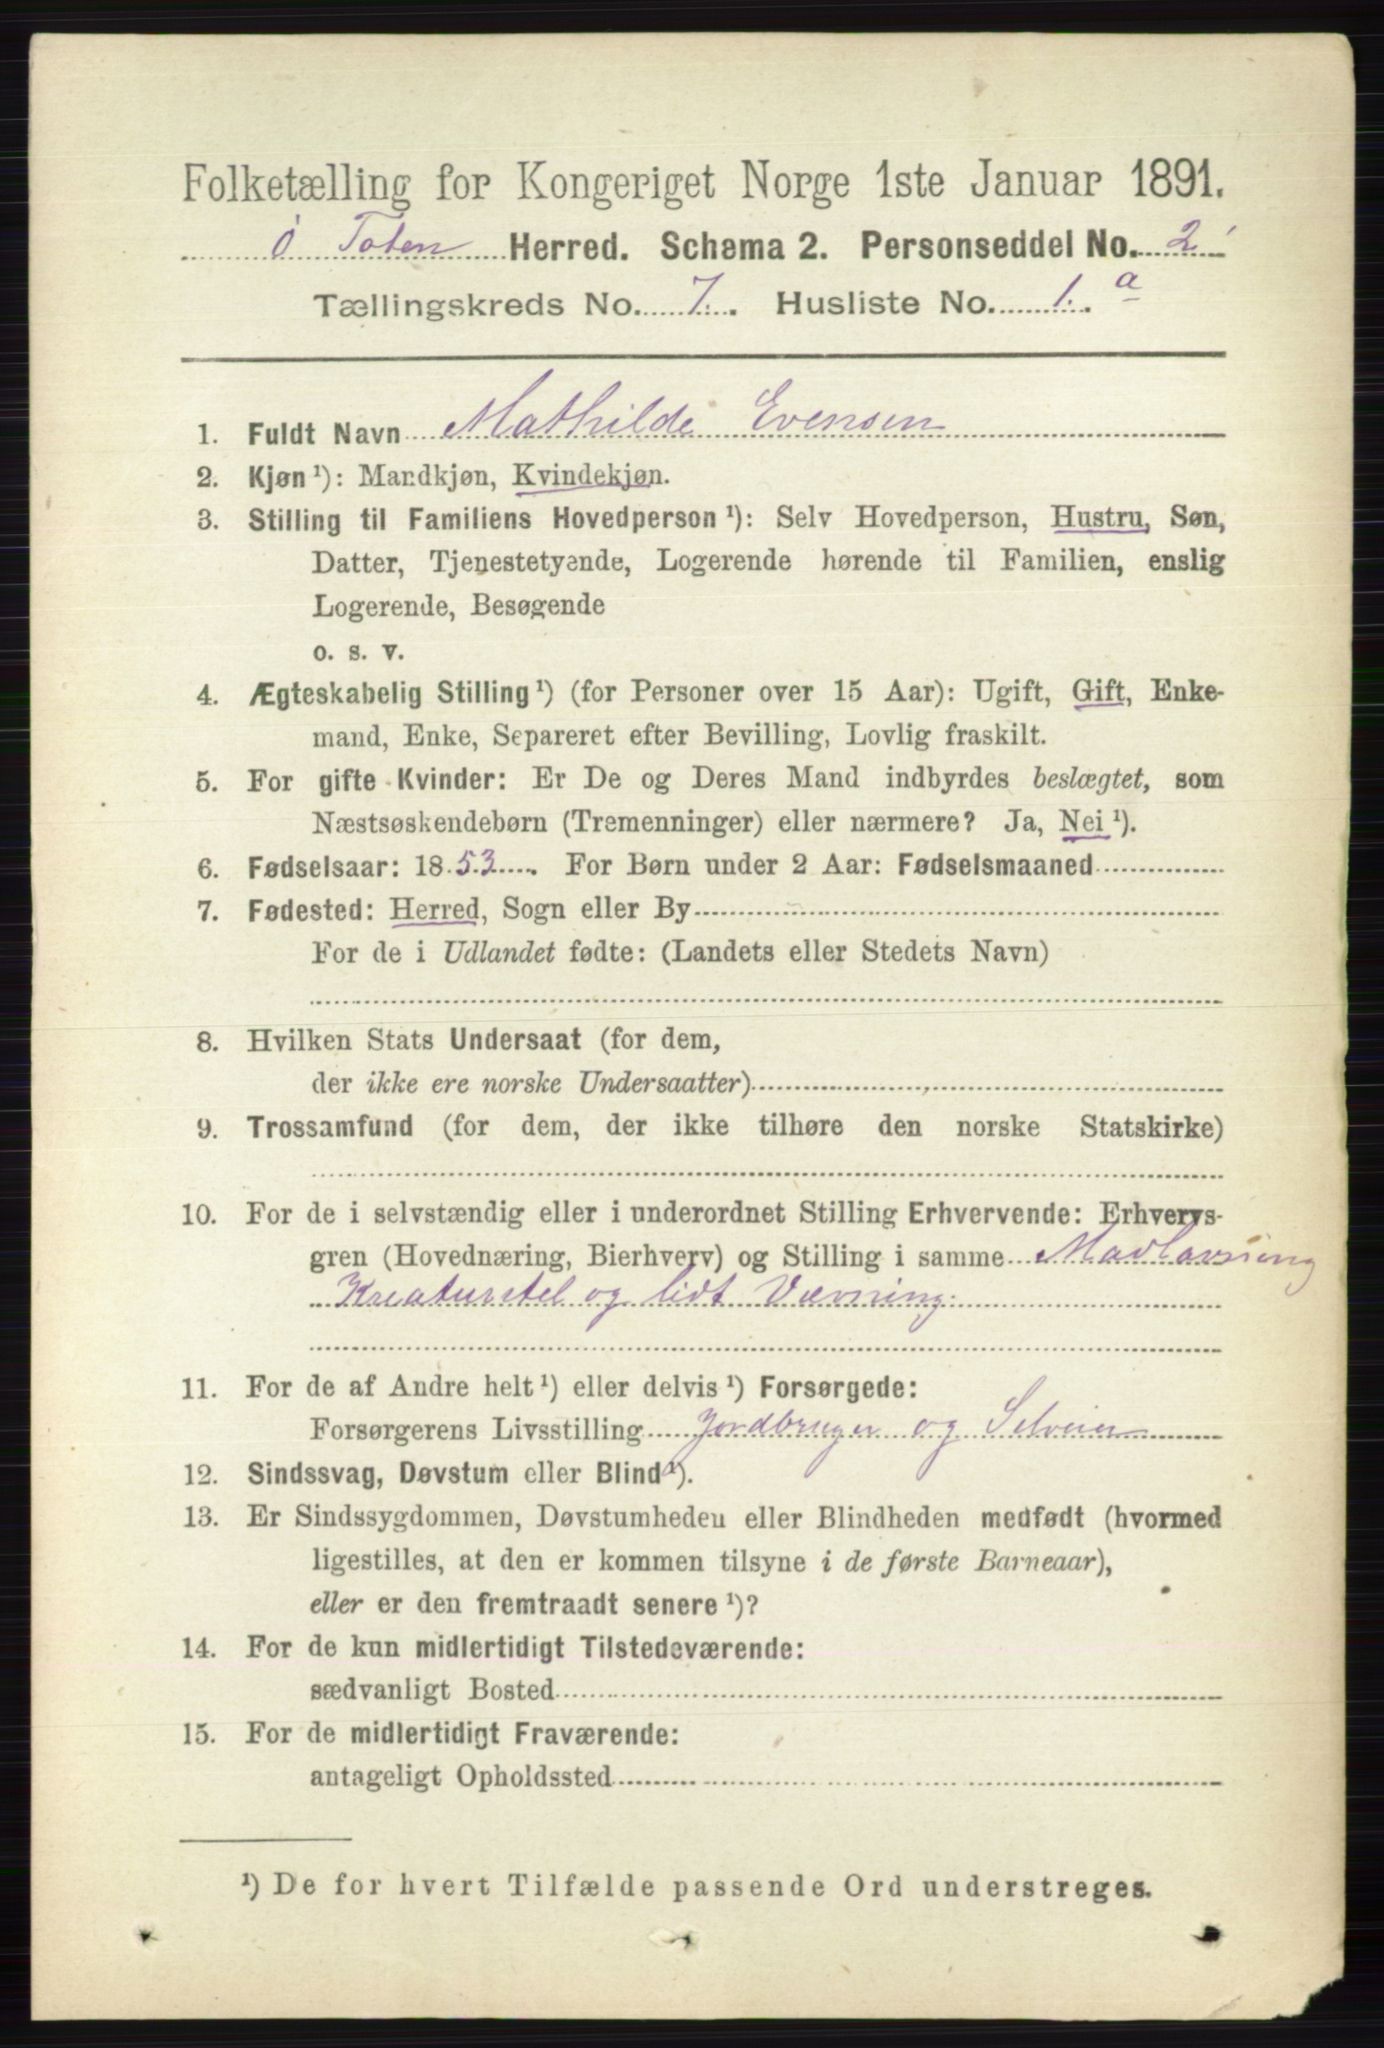 Folketælling for Kongeriget Norge 1ste Januar 1891.
Ø Toten Herred. Schema 2. Personseddel No. 2
Tællingskreds No. 7. Husliste No. 1. a
1. Fuldt Navn Mathilde Evensen
2. Kjøn ¹): Mandkjøn, Kvindekjøn.
3. Stilling til Familiens Hovedperson ¹): Selv Hovedperson, Hustru, Søn,
Datter, Tjenestetyende, Logerende hørende til Familien, enslig
Logerende, Besøgende
o. s. v.
4. Ægteskabelig Stilling ¹) (for Personer over 15 Aar): Ugift, Gift, Enke-
mand, Enke, Separeret efter Bevilling, Lovlig fraskilt.
5. For gifte Kvinder: Er De og Deres Mand indbyrdes beslægtet, som
Næstsøskendebørn (Tremenninger) eller nærmere? Ja, Nei ¹).
6. Fødselsaar: 1853. For Børn under 2 Aar: Fødselsmaaned
7. Fødested: Herred, Sogn eller By
For de i Udlandet fødte: (Landets eller Stedets Navn)
8. Hvilken Stats Undersaat (for dem,
der ikke ere norske Undersaatter)
9. Trossamfund (for dem, der ikke tilhøre den norske Statskirke)
10. For de i selvstændig eller i underordnet Stilling Erhvervende: Erhvervs-
gren (Hovednæring, Bierhverv) og Stilling i samme Madlavning
Kreaturstel og lidt Vævning.
11. For de af Andre helt ¹) eller delvis ¹) Forsørgede:
Forsørgerens Livsstilling Jordbruger og Selveier
12. Sindssvag, Døvstum eller Blind ¹).
13. Er Sindssygdommen, Døvstumheden eller Blindheden medfødt (hvormed
ligestilles, at den er kommen tilsyne i de første Barneaar),
eller er den fremtraadt senere ¹)?
14. For de kun midlertidigt Tilstedeværende:
sædvanligt Bosted
15. For de midlertidigt Fraværende:
antageligt Opholdssted
¹) De for hvert Tilfælde passende Ord understreges.